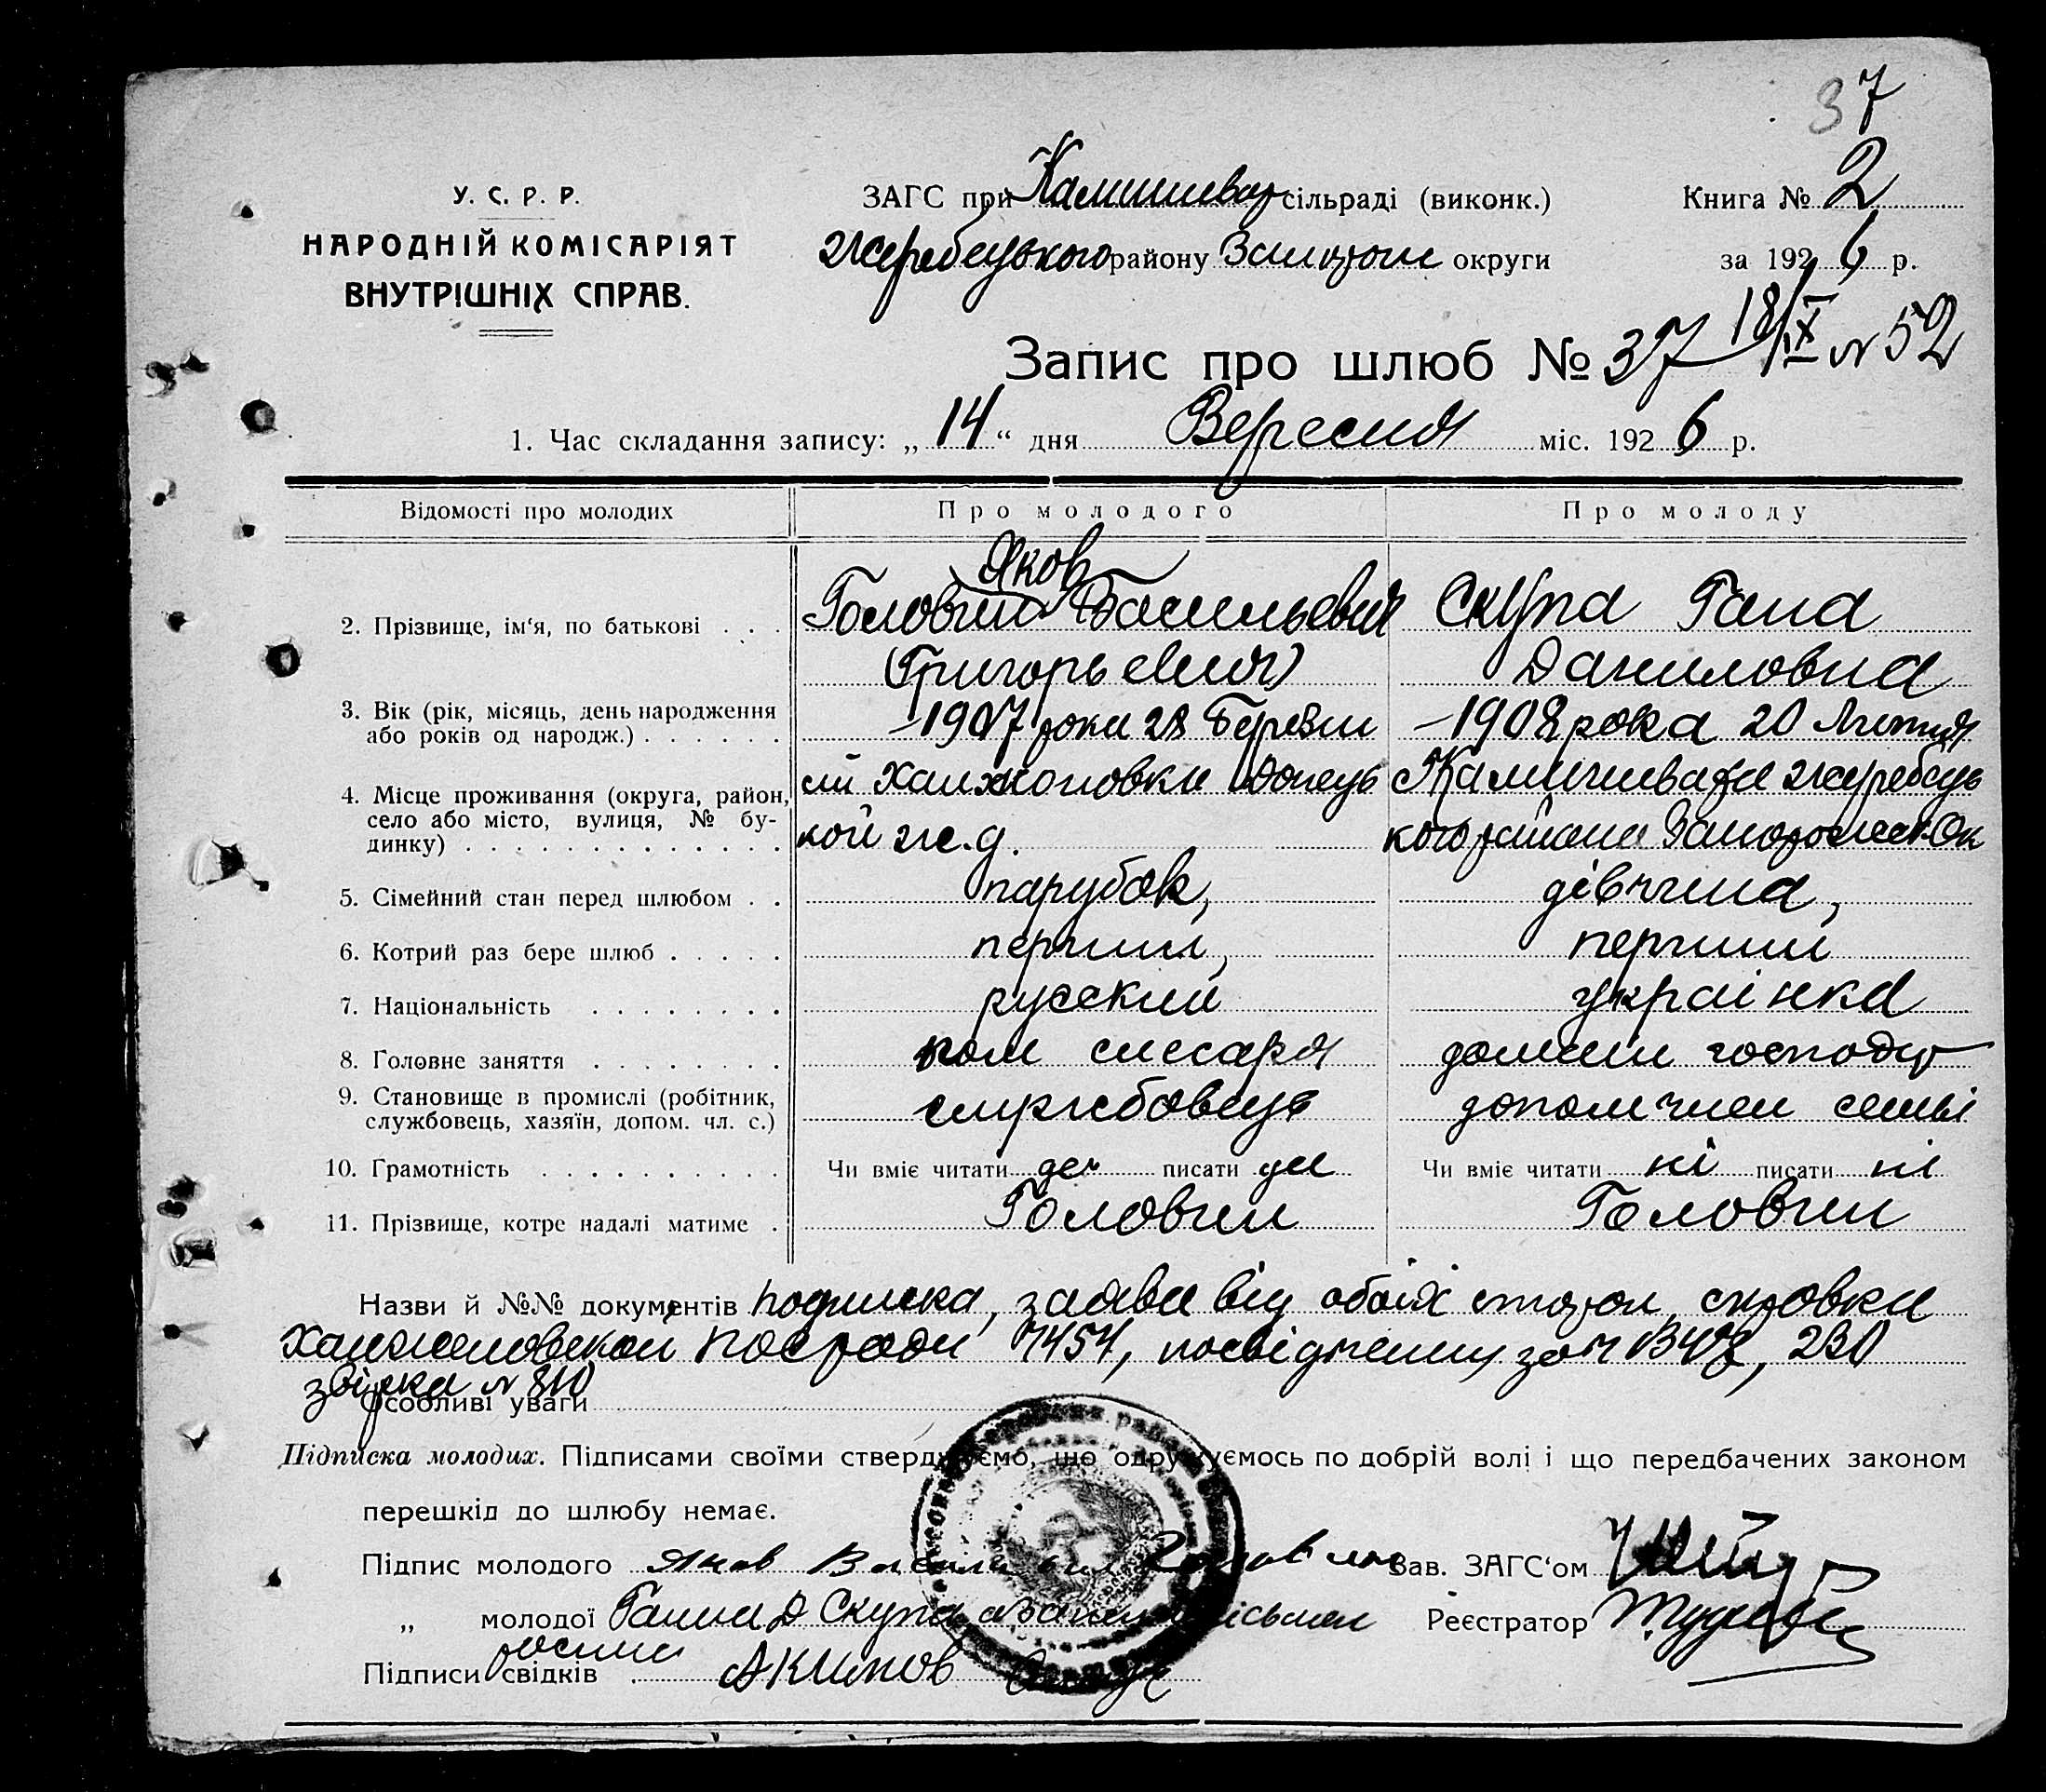 37
У. С. Р. Р.
НАРОДНІЙ КОМІСАРІЯТ
ВНУТРІШНІХ СПРАВ.
ЗАГС при Камишеват сільраді (виконк.)
Жеребецького району Запорож округи
Книга № 2
за 1926 р.
Запис про шлюб № 37 18/IX № 52
1. Час складання запису: „14“ дня Вересня міс. 1926 р.
Відомості про молодих
Про молодого
Про молоду
2. Прізвище, ім‘я, по батькові . . .
Яков
Головчин Васильевич
(Григорьевич)
Скупа Гана
Даниловна
3. Вік (рік, місяць, день народження
або років од народж.) . . . . . .
1907 року 28 Березня
1908 рока 20 Лютня
4. Місце проживання (округа, район,
село або місто, вулиця, № бу-
динку) . . . . . . . . . . . . .
Ханжоновки Донець
кой ж.д.
Камишевата Жеребець
кого района Запорожськ. Ок
5. Сімейний стан перед шлюбом . .
парубок,
дівчина,
6. Котрий раз бере шлюб . . . . .
перший,
перший
7. Національність . . . . . . . .
русский
українка
8. Головне заняття . . . . . . . .
пом слесаря
домашн господар
9. Становище в промислі (робітник,
службовець, хазяїн, допом. чл. с.)
службовець
допом член семьі
10. Грамотність . . . . . . . . . .
Чи вміє читати да писати да
Чи вміє читати ні писати ні
11. Прізвище, котре надалі матиме .
Головчин
Головчин
Назви й №№ документів подписка, заява від обоїх сторон, справка
Ханженовской посради 7454, посвідчення за № 230
збірка № 810
Особливі уваги
Підписка молодих. Підписами своїми стверджуємо, що одружуємось по добрій волі і що передбачених законом
перешкід до шлюбу немає.
Підпис молодого Яков
Зав. ЗАГС‘ом
„ молодої Ганна Д Скупа
Реєстратор
Підписи свідків Акимов